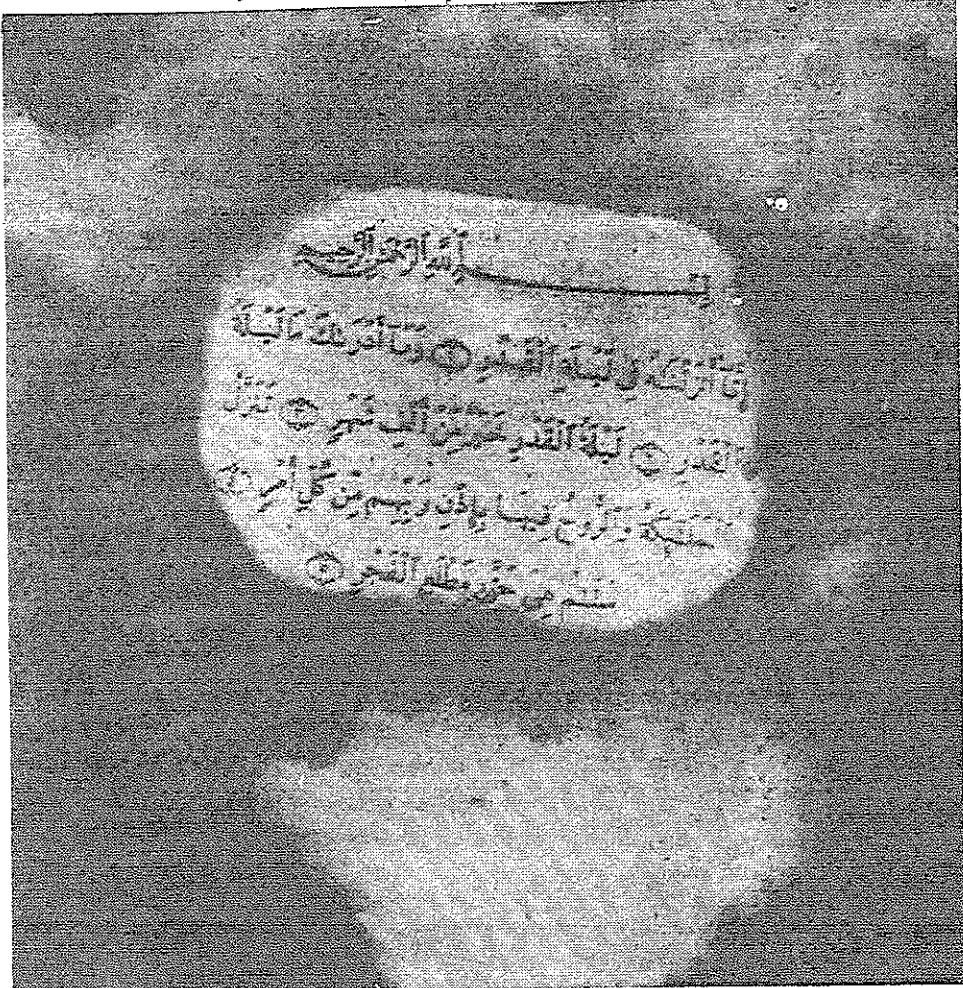 بِسْمِ ٱللَّهِ ٱلرَّحْمَٰنِ ٱلرَّحِيمِ
إِنَّآ أَنزَلْنَٰهُ فِى لَيْلَةِ ٱلْقَدْرِ ١ وَمَآ أَدْرَىٰكَ مَا لَيْلَةُ
ٱلْقَدْرِ ٢ لَيْلَةُ ٱلْقَدْرِ خَيْرٌ مِّنْ أَلْفِ شَهْرٍ ٣ تَنَزَّلُ
ٱلْمَلَٰٓئِكَةُ وَٱلرُّوحُ فِيهَا بِإِذْنِ رَبِّهِم مِّن كُلِّ أَمْرٍ ٤
سَلَٰمٌ هِىَ حَتَّىٰ مَطْلَعِ ٱلْفَجْرِ ٥